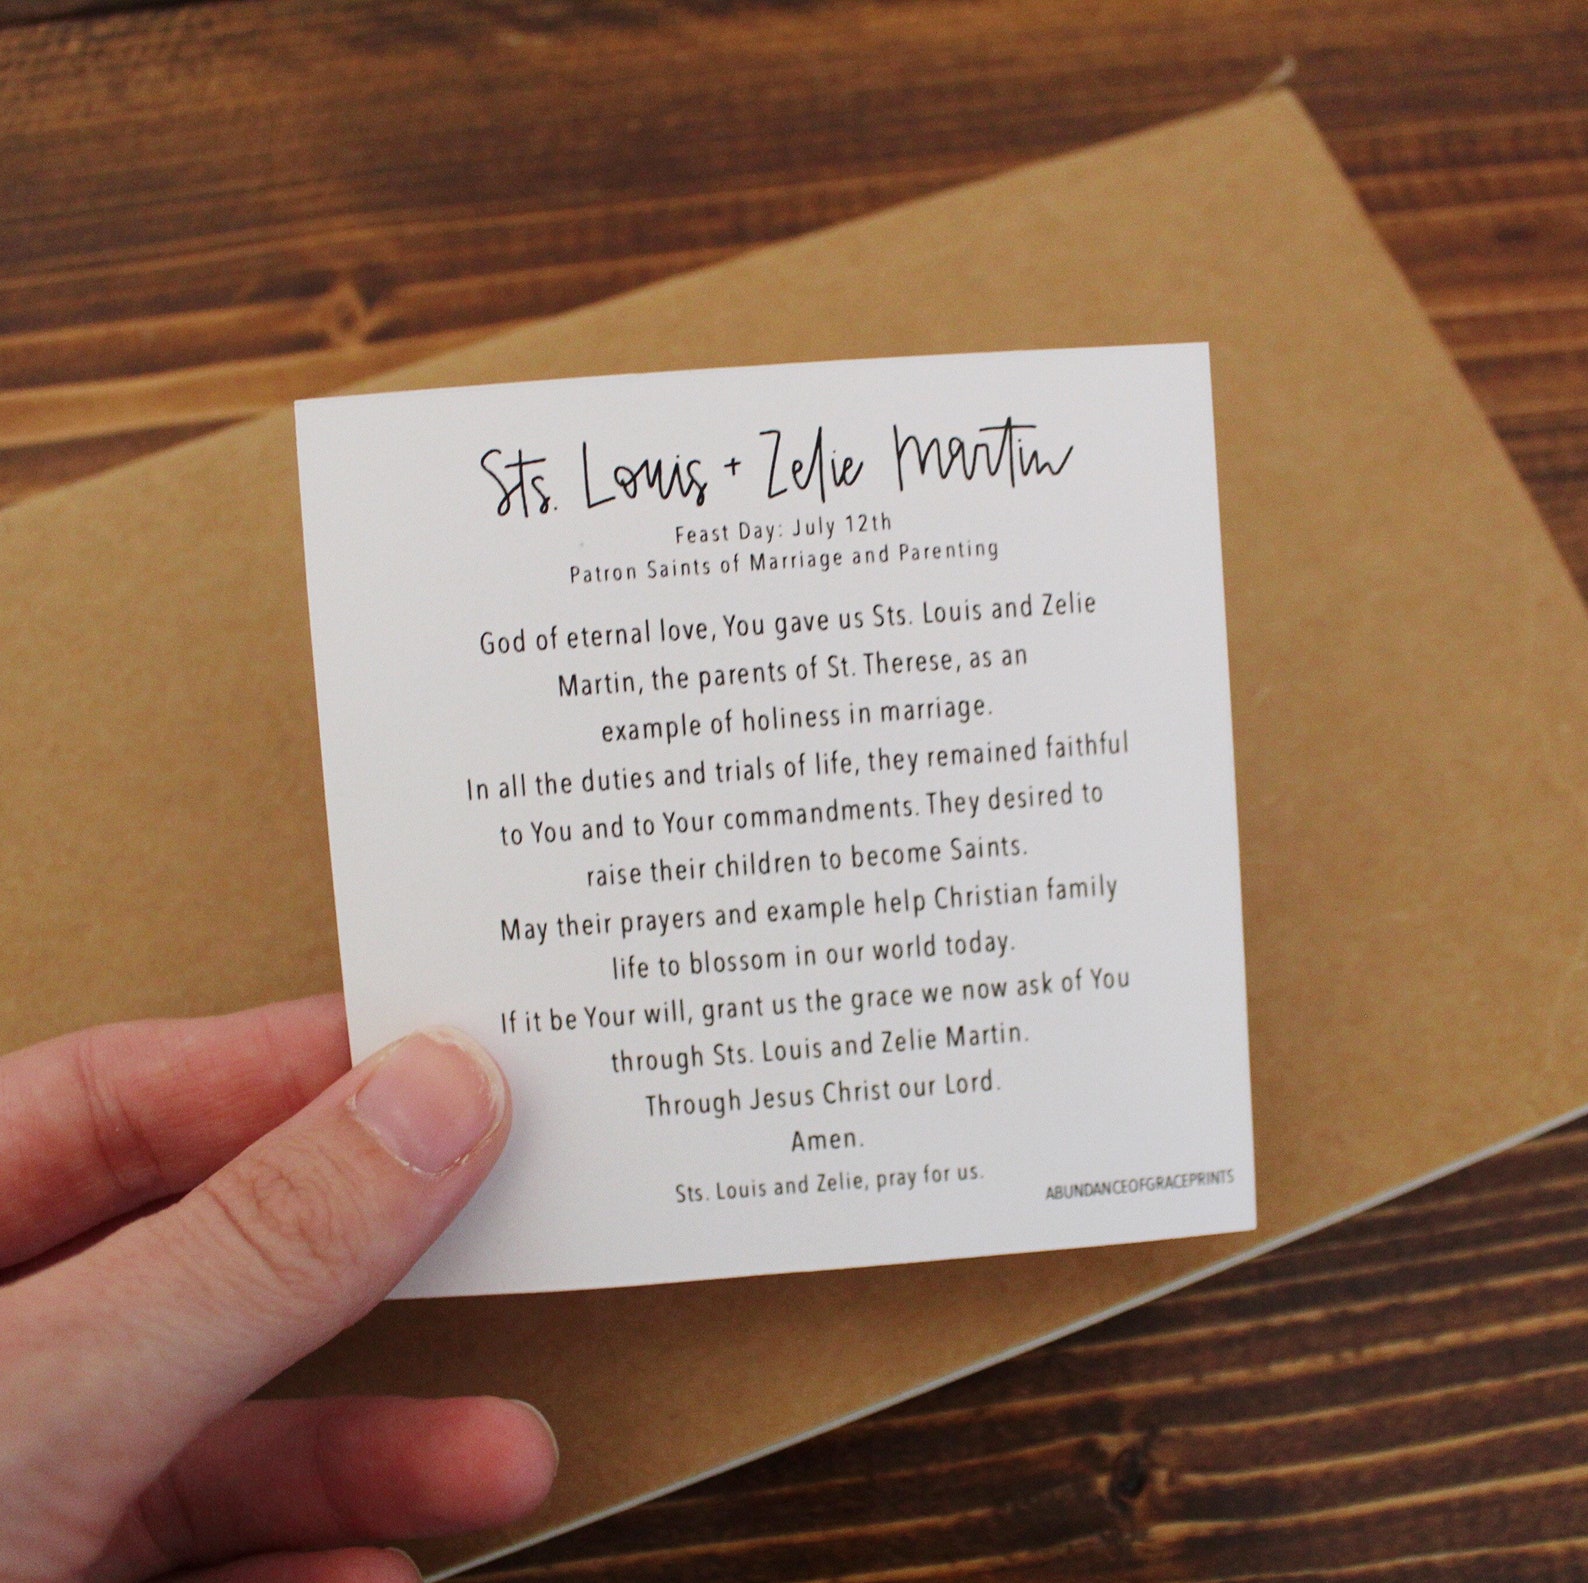 Sts. Louis + Zelie Martin
Feast Day: July 12th
Patron Saints of Marriage and Parenting
God of eternal love, You gave us Sts. Louis and Zelie
Martin, the parents of St. Therese, as an
example of holiness in marriage.
In all the duties and trials of life, they remained faithful
to You and to Your commandments. They desired to
raise their children to become Saints.
May their prayers and example help Christian family
life to blossom in our world today.
If it be Your will, grant us the grace we now ask of You
through Sts. Louis and Zelie Martin.
Through Jesus Christ our Lord.
Amen.
Sts. Louis and Zelie, pray for us.
ABUNDANCEOFGRACEPRINTS